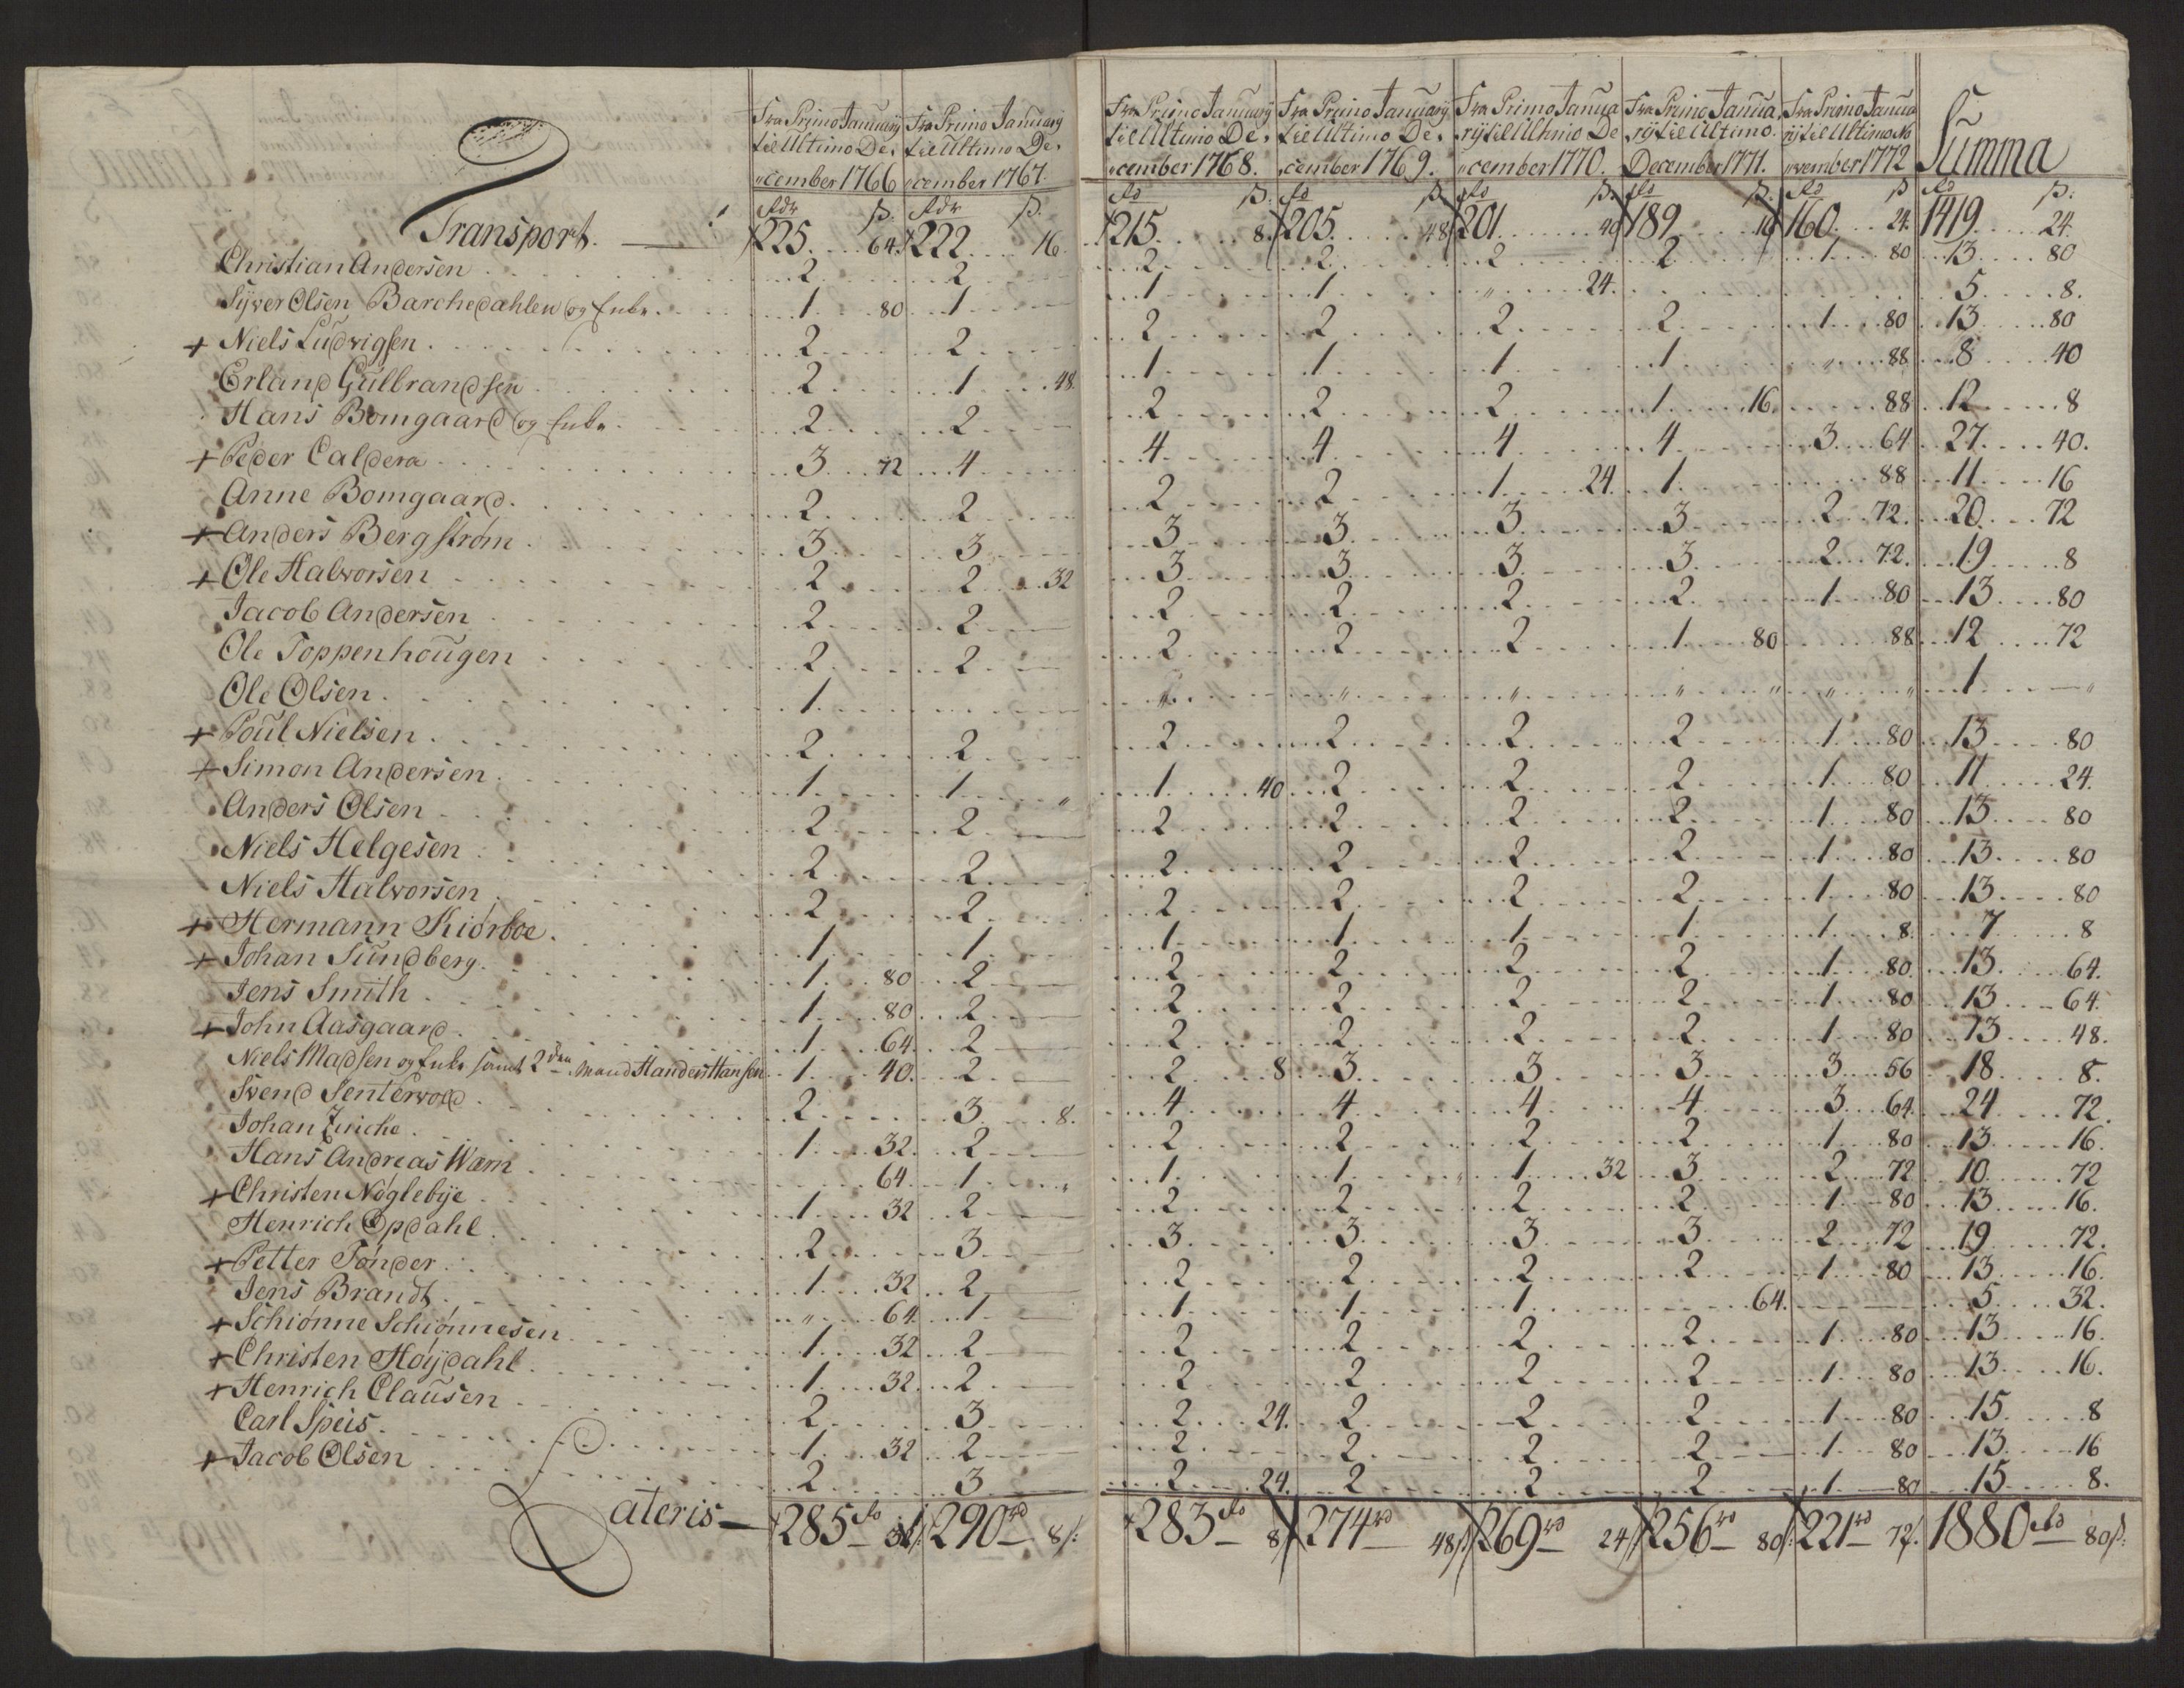 Fra Primo Januarij til Ultimo De„cember 1766 | Fra Primo Januarij til Ultimo De„cember 1767. | Fra Primo Januarij til Ultimo De„cember 1768. | Fra Primo Januarij til Ultimo De„cember 1769. | Fra Primo Janua„rij til Ultimo De„cember 1770. | Fra Primo Janua„rij til Ultimo December 1771. | Fra Primo Janua„rij til Ultimo No„vember 1772 | Summa
Rdr ß. | Rdr ß. | Rd ß. | Rd ß. | Rd ß. | Rd ß. | Rd ß | Rd ß:
Transport. | 225. 64. | 222. 16. | 215. 8. | 205. 48 | 201. 40 | 189. 16 | 160. 24. | 1419. 24.
Christian Andersen | 2 | 2 | 2 | 2 | 2 | 2 | 1. 80 | 13. 80
Syver Olsen Barchedahlen og Enke. | 1. 80 | 1 | 1 | 1 | „ 24. | | | 5. 8.
+ Niels Ludvigsen. | 2 | 2 | 2 | 2 | 2 | 2 | 1. 80 | 13. 80
Erland Gulbrandsen | 2 | 1. 48. | 1 | 1 | 1 | 1 | „ 88 | 8. 40
Hans Bomgaard og Enke. | 2 | 2 | 2 | 2 | 2 | 1. 16. | 88 | 12. 8
+ Peder Caldera | 3. 72 | 4 | 4 | 4 | 4 | 4 | 3. 64 | 27. 40.
Anne Bomgaard. | 2 | 2 | 2 | 2 | 1. 24. | 1 | 88 | 11. 16
+ Anders Bergstrøm | 3 | 3 | 3 | 3 | 3 | 3 | 2. 72. | 20. 72
+ Ole Halvorsen | 2 | 2. 32 | 3 | 3 | 3 | 3 | 2. 72. | 19. 8
Jacob Andersen | 2 | 2 | 2 | 2 | 2 | 2 | 1. 80 | 13. 80
Ole Toppenhougen | 2 | 2 | 2 | 2 | 2 | 1. 80 | 88 | 12. 72
Ole Olsen. | 1 | | „ | „ | „ | „ „ | „ „ | 1. — „
+ Poul Nielsen. | 2 | 2 | 2 | 2 | 2 | 2 | 1. 80 | 13. 80
+ Simon Andersen | 1 | 1 „ | 1. 40 | 2 | 2 | 2 | 1. 80 | 11. 24.
Anders Olsen | 2 | 2 | 2 | 2 | 2 | 2 | 1. 80 | 13. 80
Niels Helgesen | 2 | 2 | 2 | 2 | 2 | 2 | 1. 80 | 13. 80
Niels Halvorsen | 2 | 2 | 2 | 2 | 2 | 2 | 1. 80 | 13. 80
+ Hermann Kiørboe. | 1 | 1 | 1 | 1 | 1 | 1 | 1. 8. | 7. 8
+ Johan Sundberg. | 1. 80 | 2 | 2 | 2 | 2 | 2 | 1. 80 | 13. 64.
Jens Smith | 1. 80 | 2 | 2 | 2 | 2 | 2 | 1. 80 | 13. 64.
+ John Aasgaard. | 1. 64. | 2 | 2 | 2 | 2 | 2 | 1. 80 | 13. 48.
Niels Madsen og Enke samt 2den Mand Hansen | 1. 40. | 2 | 2. 8 | 3 | 3 | 3 | 3. 56 | 18. 8.
Svend Senterwold | 2 | 3. 8. | 4 | 4 | 4 | 4 | 3. 64. | 24. 72.
Johan Zinche. | 1. 32. | 2 | 2 | 2 | 2 | 2 | 1. 80 | 13. 16.
Hans Andreas Wærn | 64. | 1 „ | 1 | 1 | „ 1. 32 | 3 | 2. 72 | 10. 72
+ Christen Nøglebije | 1. 32 | 2 | 2 | 2 | 2 | 2 | 1. 80 | 13. 16.
Henrich Opdahl. | 2 | 3 | 3 | 3 | 3 | 3 | 2. 72 | 19. 72.
+ Petter Tønder. | 1. 32 | 2 | 2 | 2 | 2 | 2 | 1. 80 | 13. 16.
Jens Brandt. | „ 64 | 1 | 1 | 1 | 1 | 64. | | 5. 32.
+ Schiønne Schiønnesen | 1. 32 | 2 | 2 | 2 | 2 | 2 | 1. 80 | 13. 16.
+ Christen Høijdahl. | 1. 32. | 2 | 2 | 2 | 2 | 2 | 1. 80 | 13. 16.
+ Henrich Clausen | 2 | 3 | 2. 24. | 2 | 2 | 2 | 1. 80 | 15. 8
Carl Speis. | 1. 32 | 2 | 2 | 2 | 2 | 2 | 1. 80 | 13. 16
+ Jacob Olsen | 2 | 3 | 2. 24. | 2 | 2 | 2 | 1. 80 | 15. 8.
Lateris — | 285 rd | 290 rd 8ß: | 283 rd 8ß | 274 rd 48ß | 269 rd 24ß | 256 rd 80ß: | 221 rd 72. | 1880 rd 80ß: